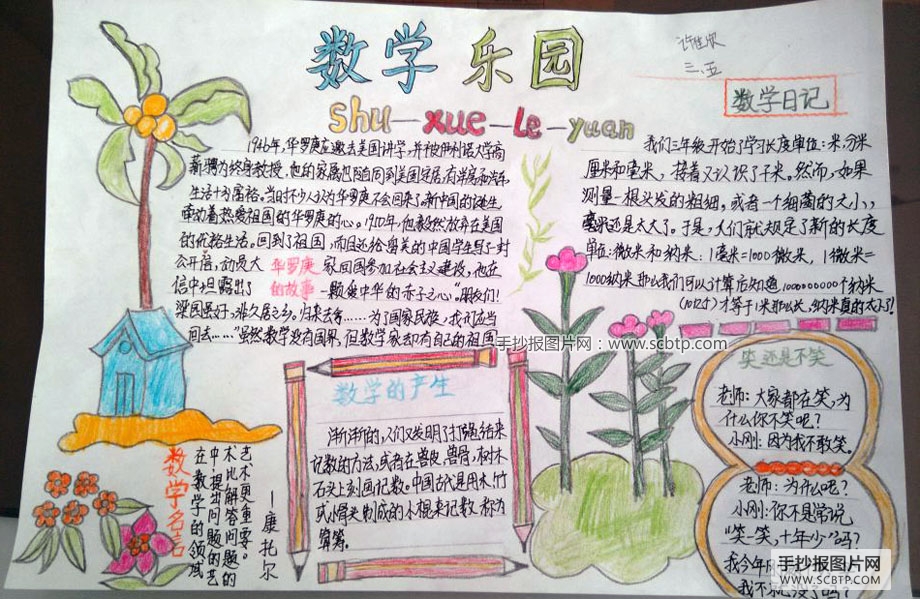 数学乐园
shu—xue—Le—yuan
许佳欣
三、五
数学日记
1946年,华罗庚应邀去美国讲学,并被伊利诺大学高
薪聘为终身教授,他的家属也随同到美国定居,有洋房和汽车,
生活十分富裕。当时不少人认为华罗庚不会回来了。新中国的诞生,
牵动着热爱祖国的华罗庚的心。1950年,他毅然放弃在美国
的优裕生活。回到了祖国,而且还给留美的中国学生写了一封
公开信,动员大家回国参加社会主义建设,他在
信中坦露出了一颗爱中华的赤子之心“朋友们!
梁园虽好,非久居之乡。归来去兮……为了国家民族,我们应当
回去……”虽然数学没有国界,但数学家却有自己的祖国
华罗庚
的故事
我们三年级开始了学习长度单位:米、分米
厘米和毫米,接着又认识了千米。然而,如果
测量一根头发的粗细,或者一个细菌的大小,
毫米还是太大了。于是,人们就规定了新的长度
单位:微米和纳米:1毫米=1000微米,1微米=
1000纳米那么我们可以计算后知道,1000000000个纳米
(10亿)才等于1米那么长,纳米真的太小了!
手抄报图片网:www.scbtp.com
数学的产生
渐渐的,人们又发明了打绳结来
记数的方法,或者在兽皮、兽骨、树木
石头上刻画记数。中国古代是用木、竹
或小骨头制成的小棍来记数,称为
算筹。
笑还是不笑
老师:大家都在笑,为
什么你不笑呢?
小刚:因为我不敢笑。
老师:为什么呢?
小刚:你不是常说
“笑一笑,十年少”吗?
我今年
我不就没了吗?
数学名言
在数学的领域
中,提出问题的艺
术比解答问题的
艺术更重要。
—康托尔
手抄报图片网
WWW.SCBTP.COM